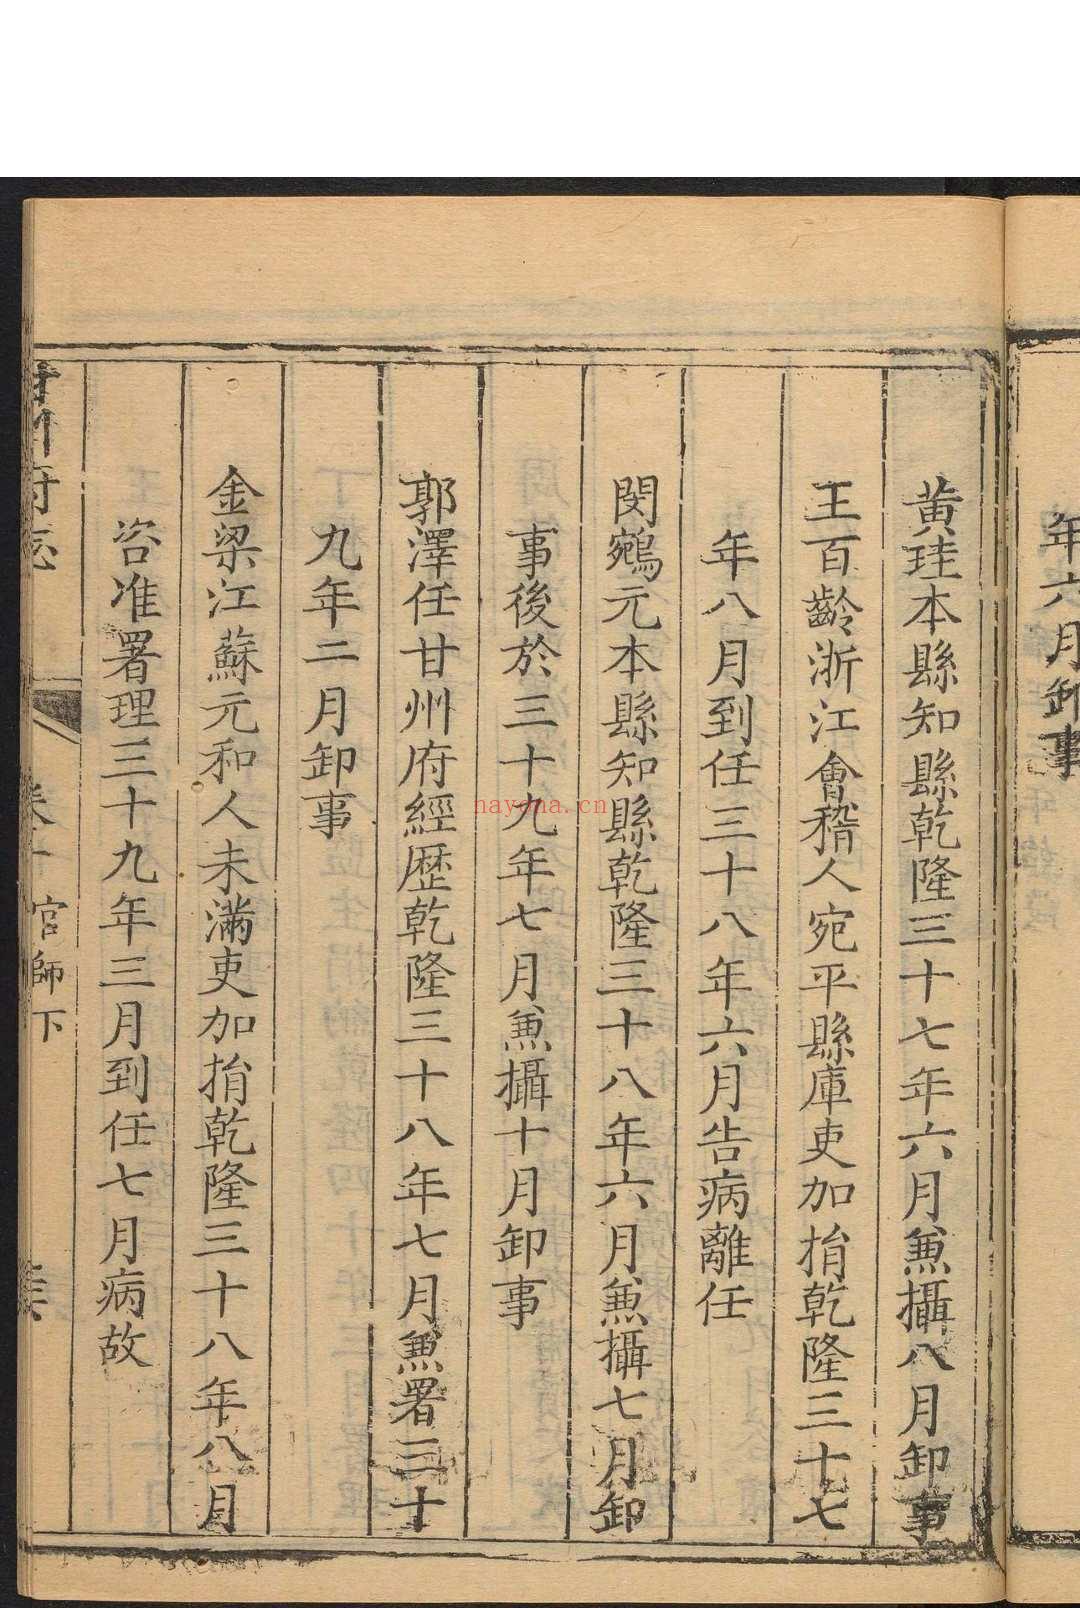 年六月卸事
黄珪本縣知縣乾隆三十七年六月兼攝八月卸事
王百齡浙江會稽人宛平縣庫吏加捐乾隆三十七
年八月到任三十八年六月告病離任
閔鵷元本縣知縣乾隆三十八年六月兼攝七月卸
事後於三十九年七月兼攝十月卸事
郭澤任甘州府經歷乾隆三十八年七月兼署三十
九年二月卸事
金梁江蘇元和人未滿吏加捐乾隆三十八年八月
咨准署理三十九年三月到任七月病故
甘州府志
官師下
nayona.cn